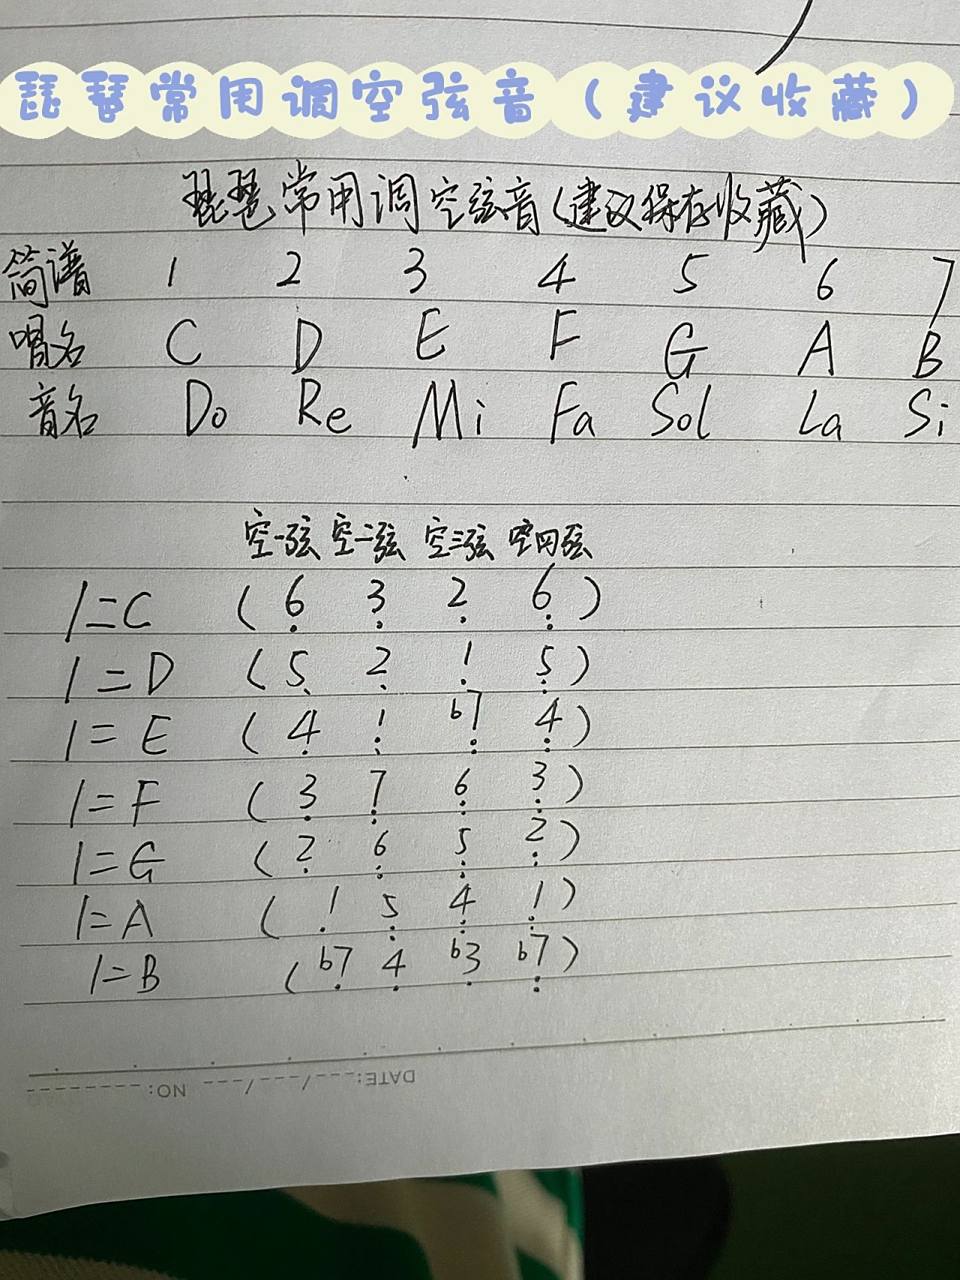 琵琶常用调空弦音（建议收藏）
琵琶常用调空弦音(建议保存收藏)
简谱 1 2 3 4 5 6 7
唱名 C D E F G A B
音名 Do Re Mi Fa Sol La Si
空一弦 空二弦 空三弦 空四弦
1=C (6̣ 3̣ 2̣ 6̤)
1=D (5̣ 2̣ 1̣ 5̤)
1=E (4̣ 1̣ b7̤ 4̤)
1=F (3̣ 7̣ 6̤ 3̤)
1=G (2̣ 6̤ 5̤ 2̤)
1=A (1̣ 5̤ 4̤ 1̤)
1=B (b7̣ 4̣ b3̣ b7̤)
DATE: ---/---/--- NO: --------